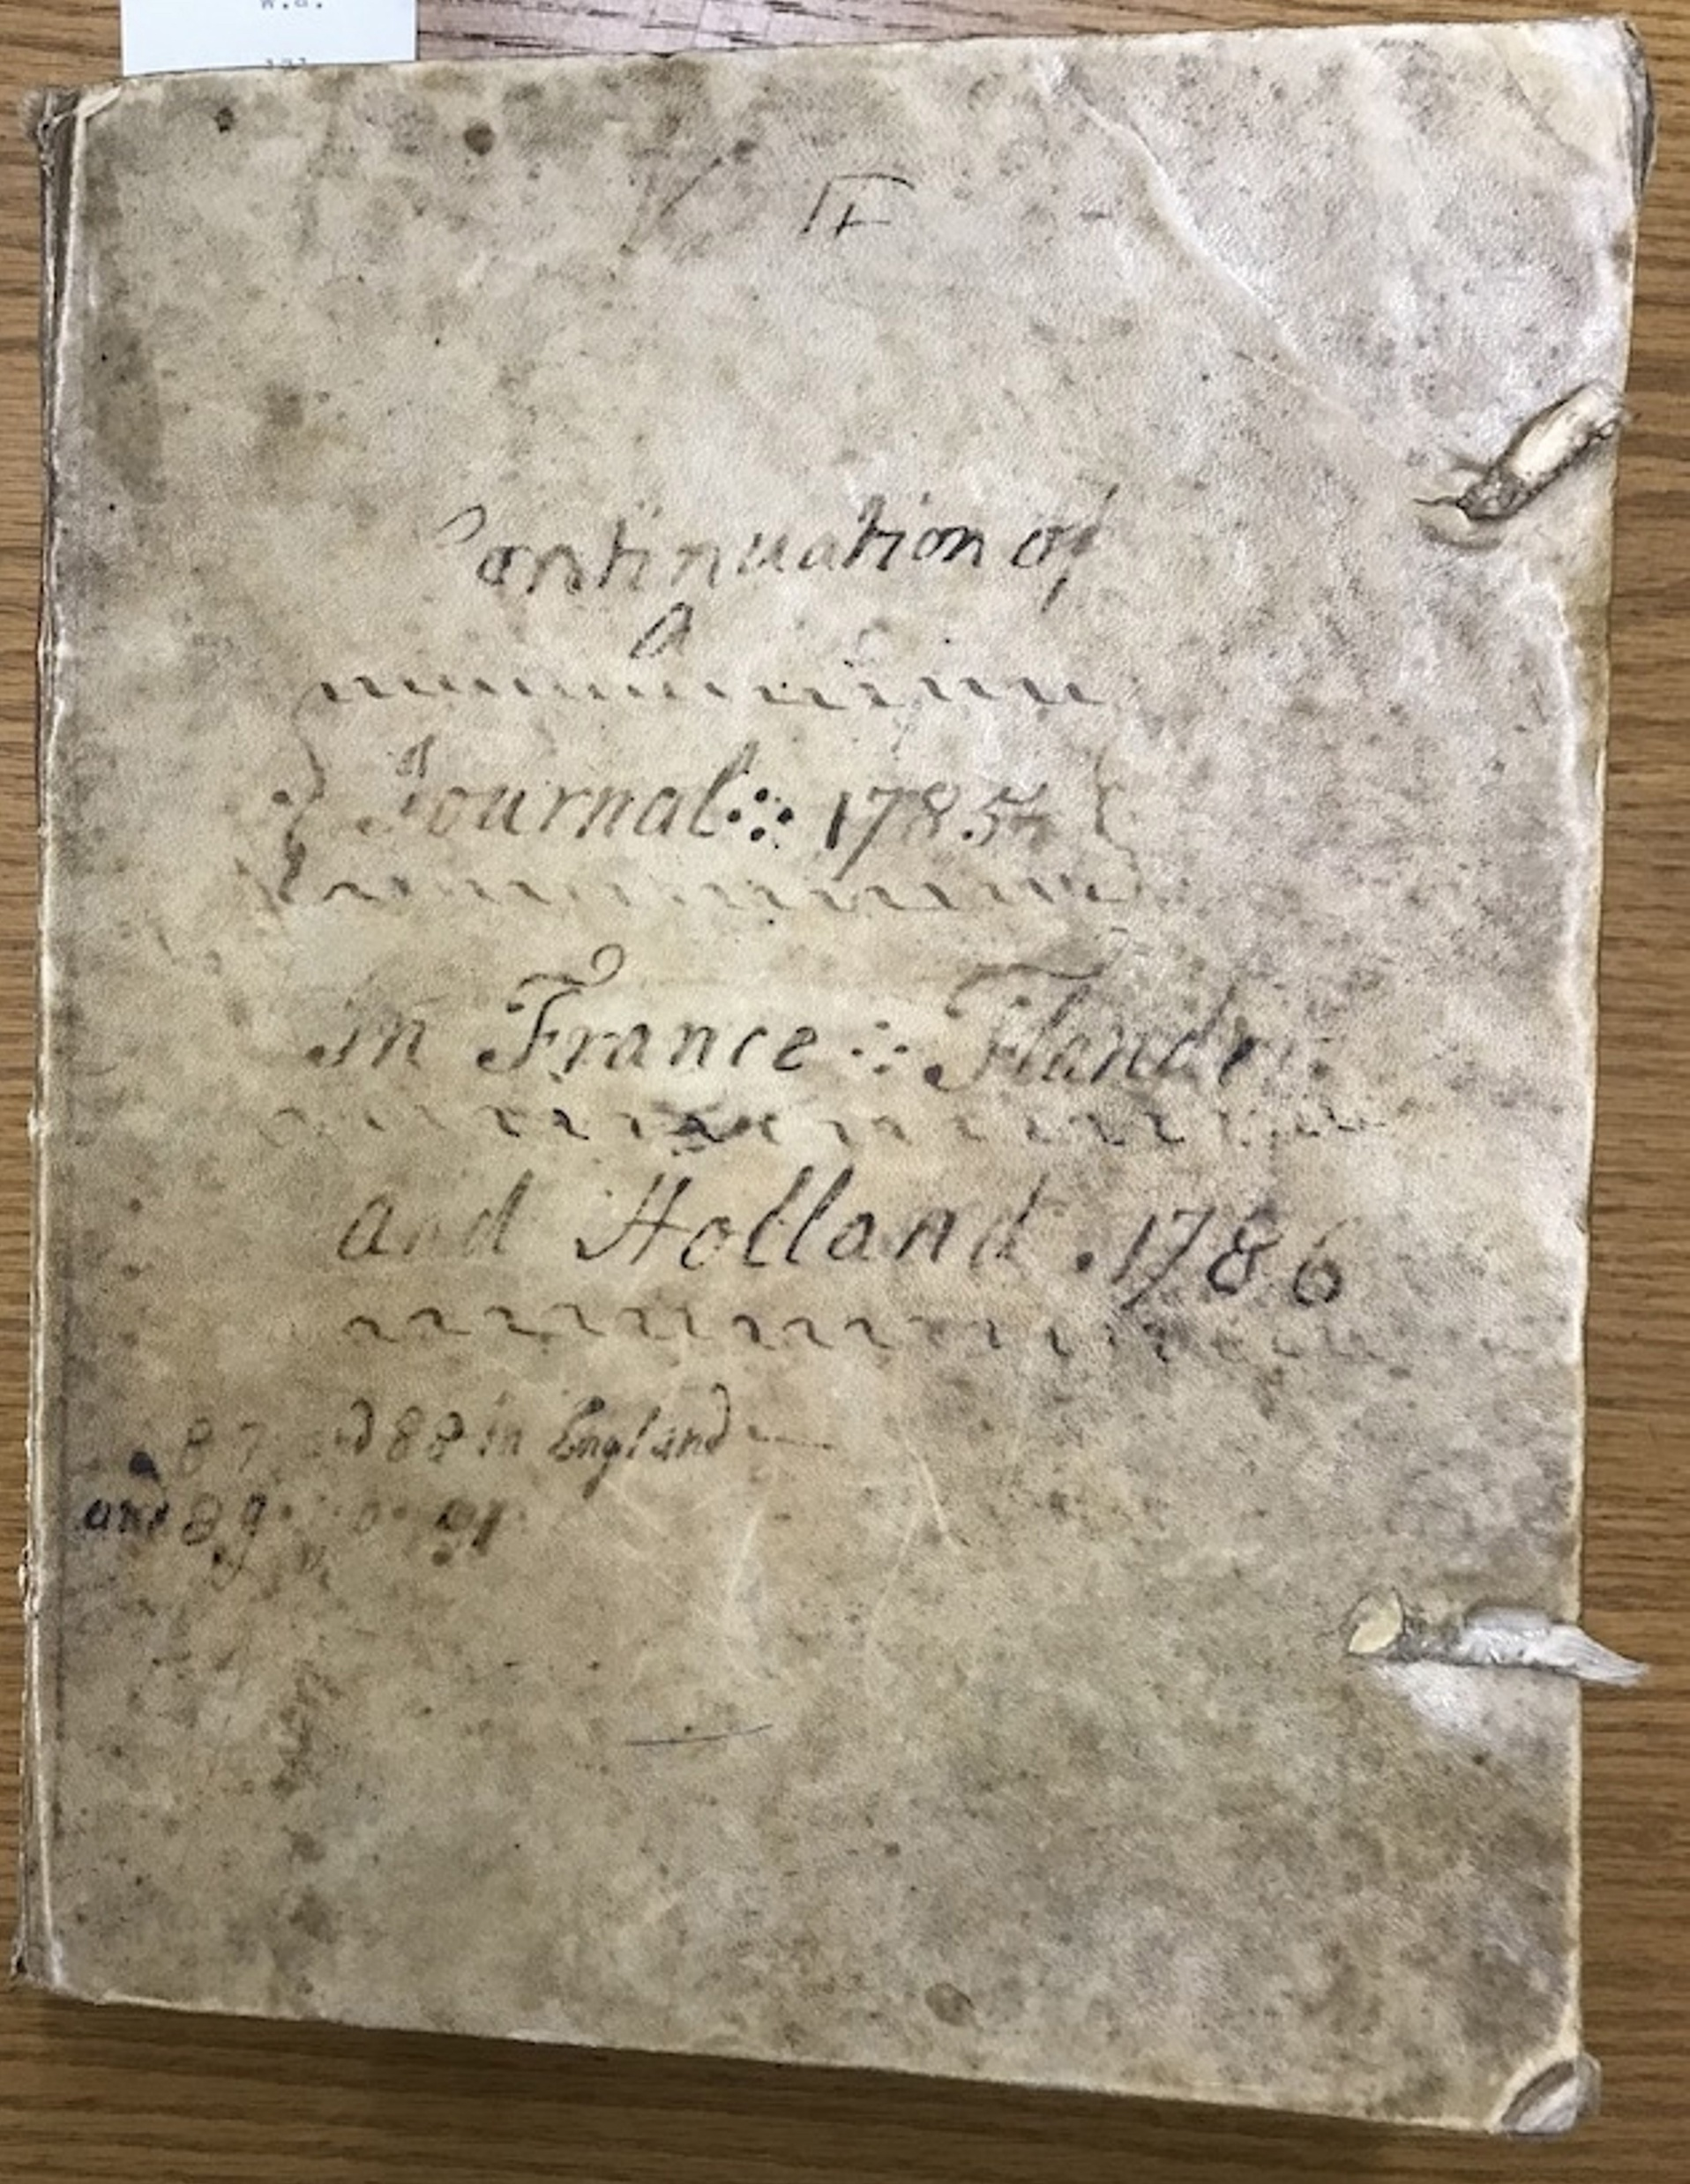 W.a.
Continuation of
A
Journal 1785
In France Flanders
and Holland . 1786
87 and 88 in England
and 89 91